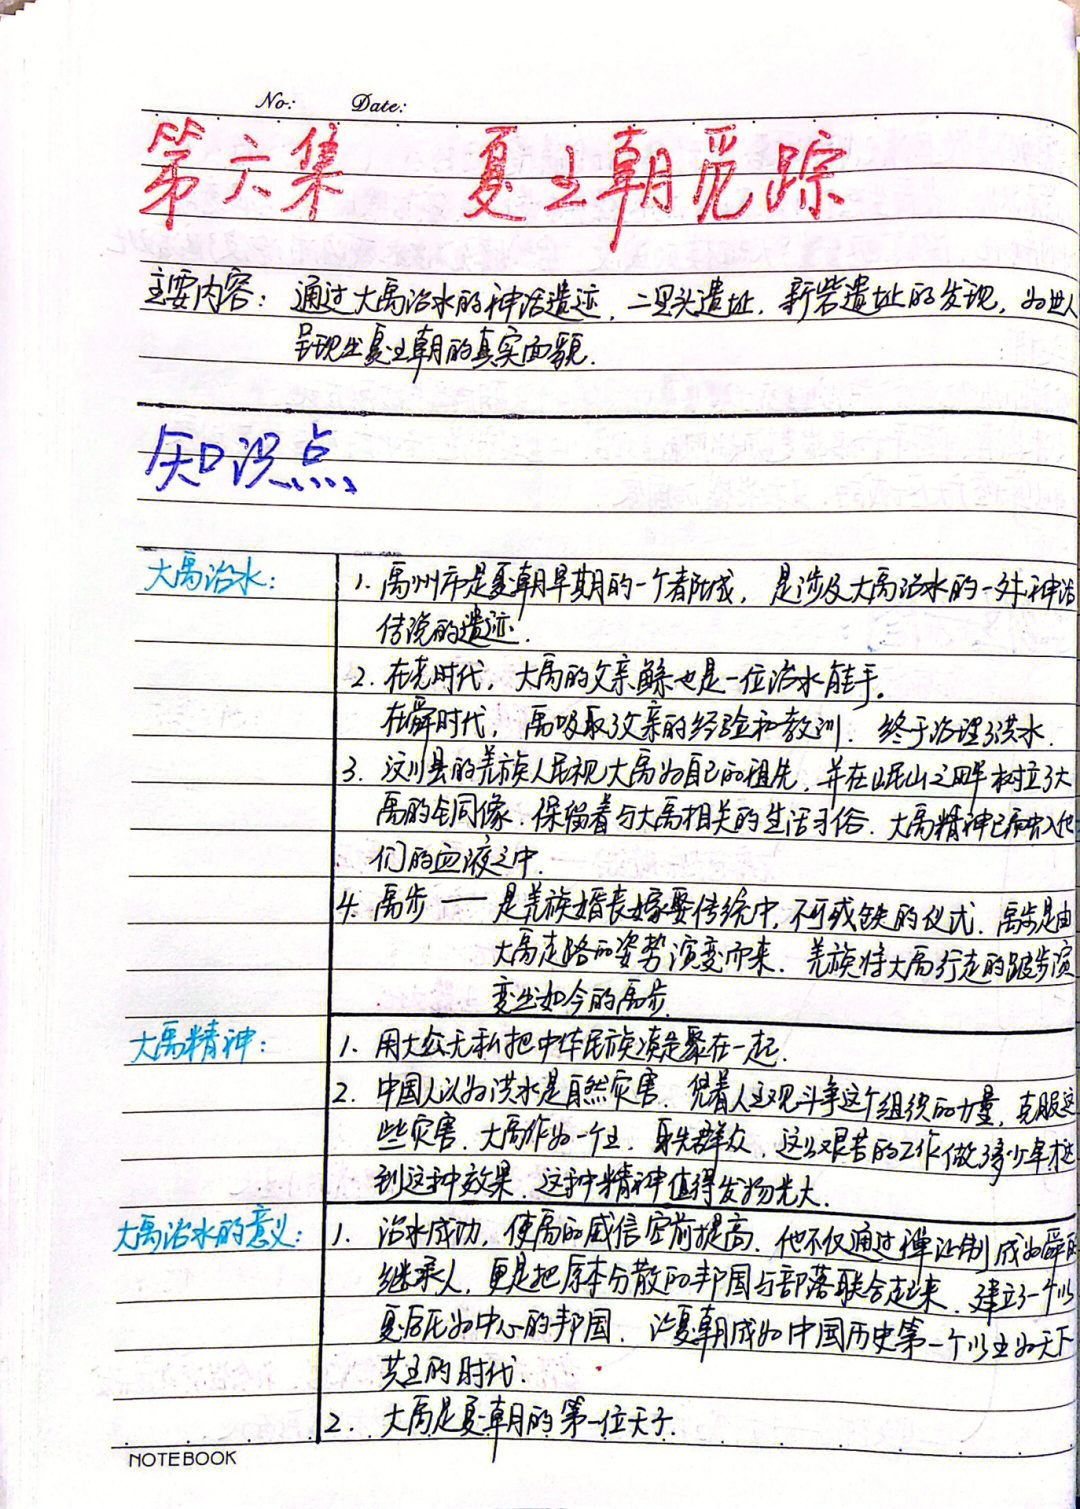 No.: Date:
第六集 夏王朝觅踪
主要内容：通过大禹治水的神话遗迹，二里头遗址，新砦遗址的发现，为世人
呈现出夏王朝的真实面貌.
知识点
大禹治水：
1. 禹州市是夏朝早期的一个都城，是涉及大禹治水的一处神话
传说的遗迹.
2. 在尧时代，大禹的父亲鲧也是一位治水能手。
在舜时代，禹吸取父亲的经验和教训. 终于治理了洪水.
3. 汶川县的羌族人民视大禹为自己的祖先，并在岷山之畔树立了大
禹的铜像. 保留着与大禹相关的生活习俗. 大禹精神已融入他
们的血液之中.
4. 禹步 —— 是羌族婚丧嫁娶传统中，不可或缺的仪式. 禹步是由
大禹走路的姿势演变而来. 羌族将大禹行走的跛步演
变出如今的禹步.
大禹精神：
1. 用大公无私把中华民族凝聚在一起.
2. 中国人认为洪水是自然灾害. 凭着人主观斗争这个组织的力量，克服这
些灾害. 大禹作为一个王，身先群众，这么艰苦的工作做了多少年才达
到这种效果. 这种精神值得发扬光大.
大禹治水的意义：
1. 治水成功，使禹的威信空前提高. 他不仅通过禅让制成为舜的
继承人，更是把原本分散的邦国与部落联合起来. 建立了一个以
夏后氏为中心的邦国. 让夏朝成为中国历史第一个以王为天下
共主的时代.
2. 大禹是夏朝的第一位天子.
NOTEBOOK